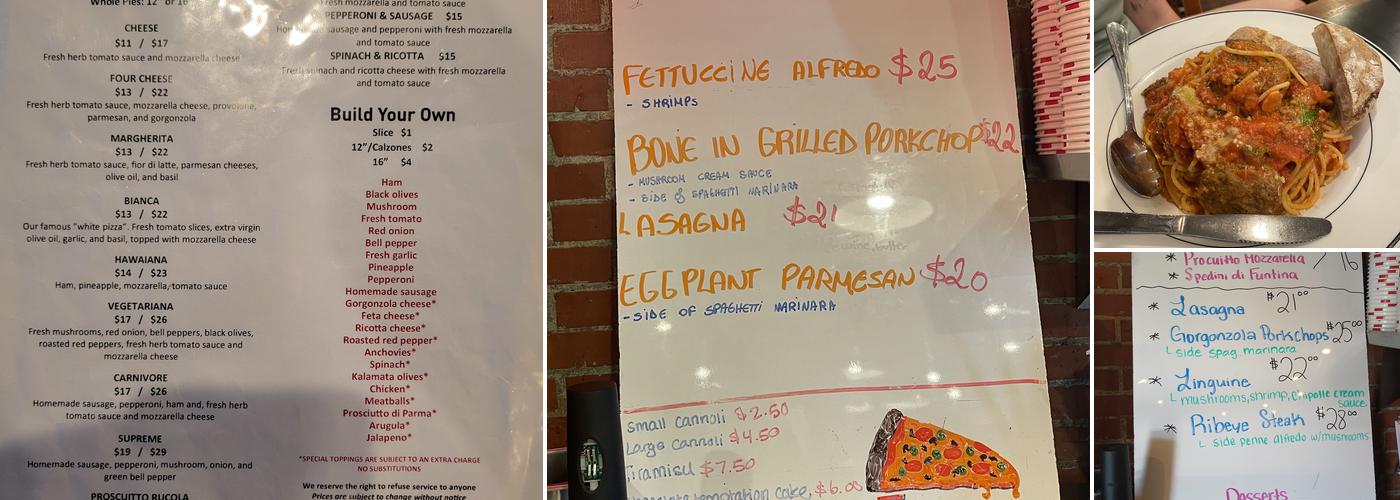 Whole Pies: 12" or 16"
CHEESE
$11 / $17
Fresh herb tomato sauce and mozzarella cheese
FOUR CHEESE
$13 / $22
Fresh herb tomato sauce, mozzarella cheese, provolone,
parmesan, and gorgonzola
MARGHERITA
$13 / $22
Fresh herb tomato sauce, fior di latte, parmesan cheeses,
olive oil, and basil
BIANCA
$13 / $22
Our famous "white pizza". Fresh tomato slices, extra virgin
olive oil, garlic, and basil, topped with mozzarella cheese
HAWAIANA
$14 / $23
Ham, pineapple, mozzarella, tomato sauce
VEGETARIANA
$17 / $26
Fresh mushrooms, red onion, bell peppers, black olives,
roasted red peppers, fresh herb tomato sauce and
mozzarella cheese
CARNIVORE
$17 / $26
Homemade sausage, pepperoni, ham and, fresh herb
tomato sauce and mozzarella cheese
SUPREME
$19 / $29
Homemade sausage, pepperoni, mushroom, onion, and
green bell pepper
PROSCUITTO RUCOLA
fresh mozzarella and tomato sauce
PEPPERONI & SAUSAGE $15
sausage and pepperoni with fresh mozzarella
and tomato sauce
SPINACH & RICOTTA $15
Fresh spinach and ricotta cheese with fresh mozzarella
and tomato sauce
Build Your Own
Slice $1
12"/Calzones $2
16" $4
Ham
Black olives
Mushroom
Fresh tomato
Red onion
Bell pepper
Fresh garlic
Pineapple
Pepperoni
Homemade sausage
Gorgonzola cheese*
Feta cheese*
Ricotta cheese*
Roasted red pepper*
Anchovies*
Spinach*
Kalamata olives*
Chicken*
Meatballs*
Prosciutto di Parma*
Arugula*
Jalapeno*
*SPECIAL TOPPINGS ARE SUBJECT TO AN EXTRA CHARGE
NO SUBSTITUTIONS
We reserve the right to refuse service to anyone
Prices are subject to change without notice
FETTUCCINE ALFREDO $25
- SHRIMPS
BONE IN GRILLED PORKCHOP $22
- MUSHROOM CREAM SAUCE
- SIDE OF SPAGHETTI MARINARA
LASAGNA $21
wine, butter
EGGPLANT PARMESAN $20
- SIDE OF SPAGHETTI MARINARA
small cannoli $2.50
Large cannoli $4.50
Tiramisu $7.50
temptation cake, $6.00
* Procuitto Mozzarella / 16
* Spedini di Funtina
* Lasagna $21.00
* Gorgonzola Porkchops $25.00
└ side spag. marinara
* Linguine $22.00
└ mushrooms, shrimp, chipotle cream
sauce
* Ribeye Steak $28.00
└ side penne alfredo w/mushrooms
Desserts